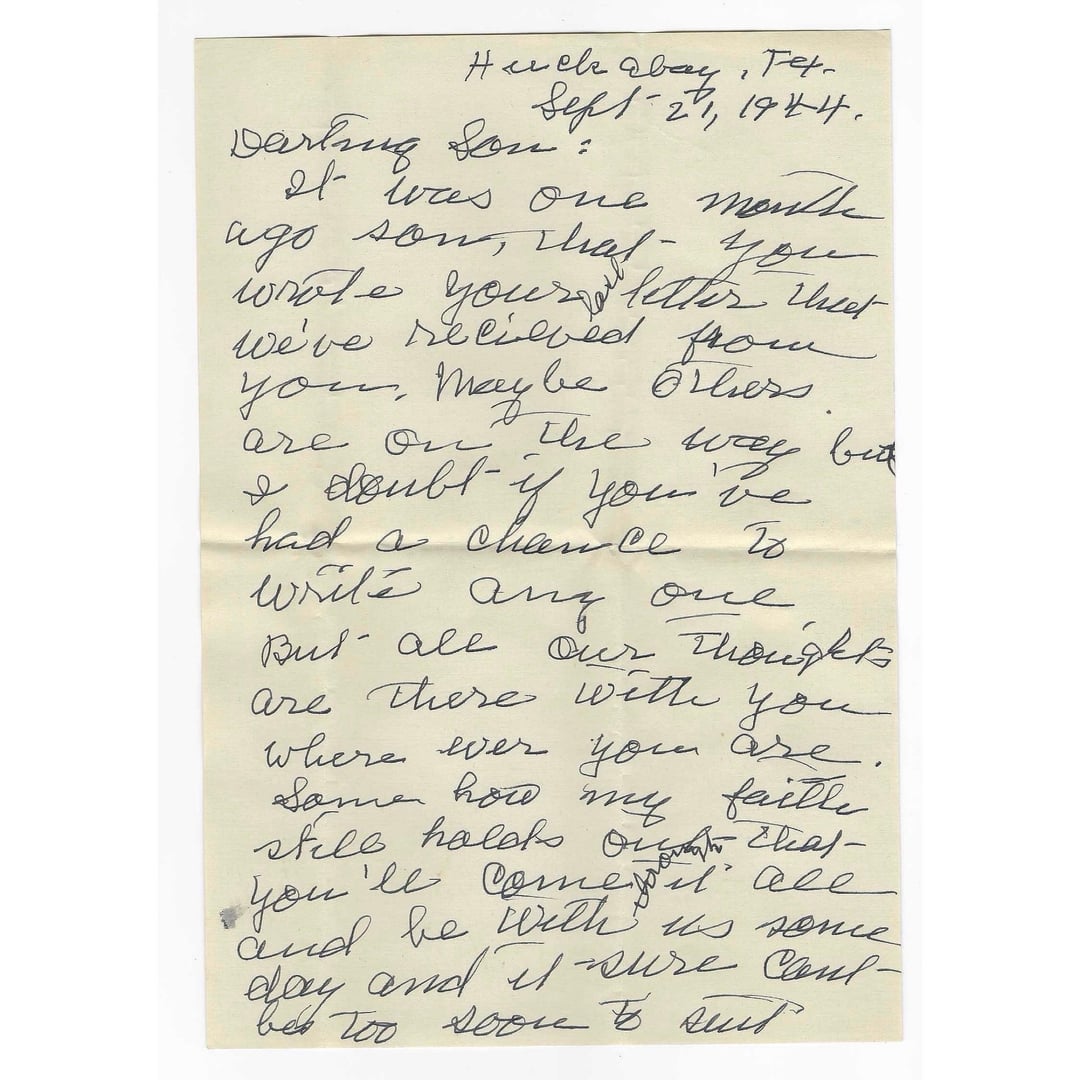 Huckabay, Tex.
Sept 21, 1944.
Darling Son:
It was one month
ago son, that you
wrote your last letter that
we've recieved from
you. Maybe others
are on the way but
I doubt if you've
had a chance to
write any one
But all our thoughts
are there with you
where ever you are.
Some how my faith
still holds out that
you'll come through it all
and be with us some
day and it sure cant
be too soon to suit